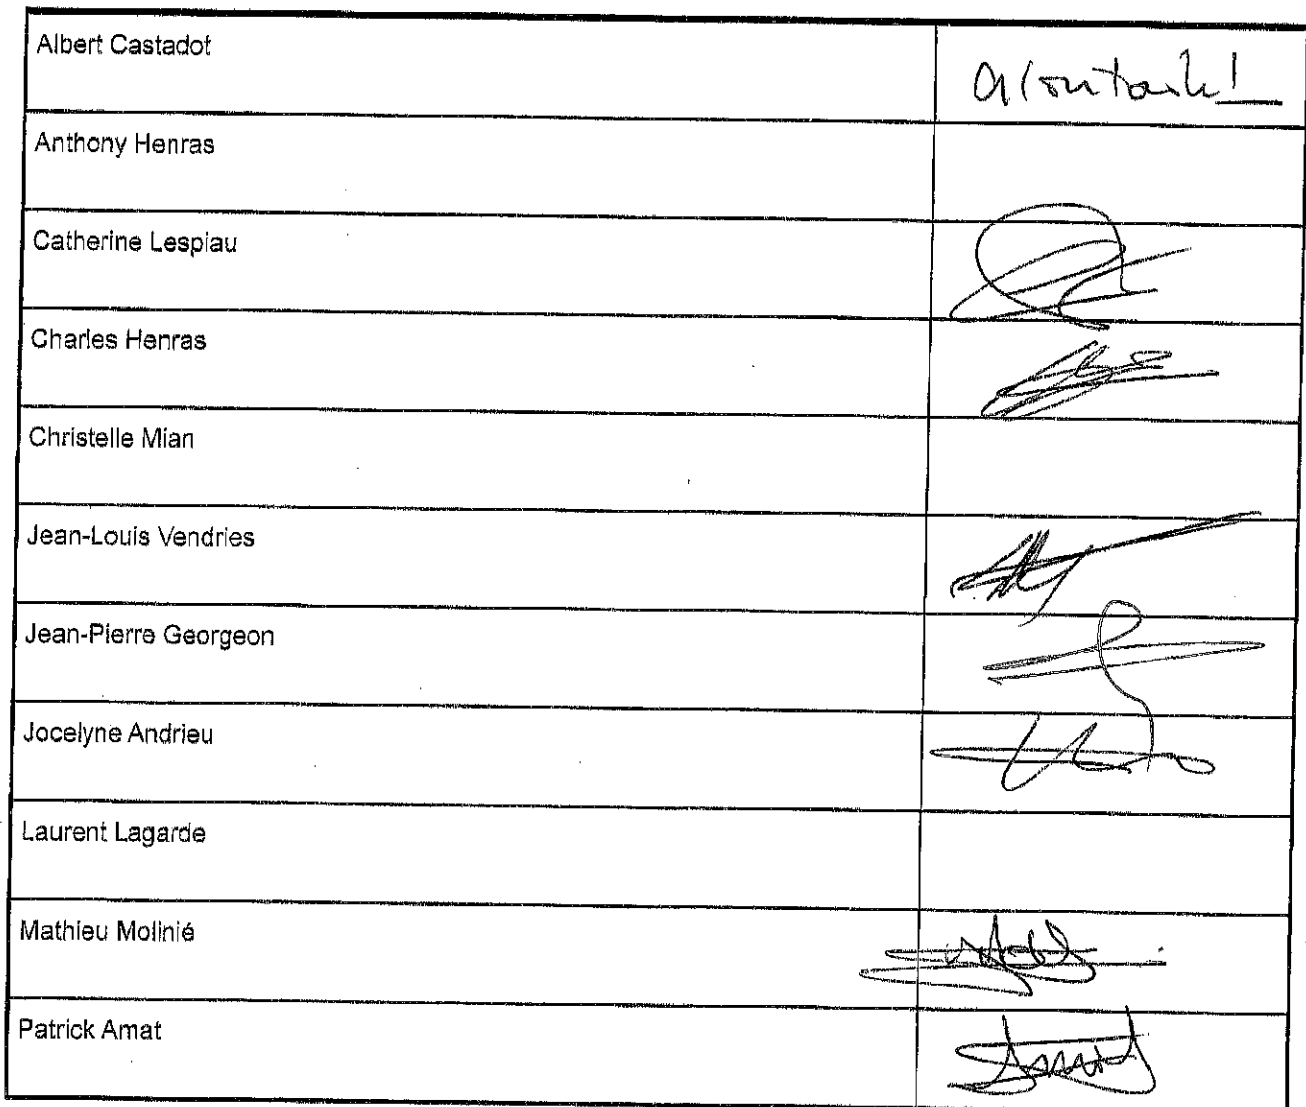 Albert Castadot
Anthony Henras
Catherine Lespiau
Charles Henras
Christelle Mian
Jean-Louis Vendries
Jean-Pierre Georgeon
Jocelyne Andrieu
Laurent Lagarde
Mathieu Molinié
Patrick Amat